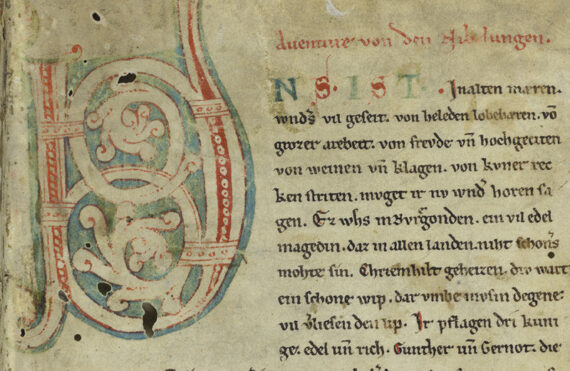 Auenture von den Nibelungen.
NS · I S T · Inalten mæren.
wnds vil geseit. von heleden lobebæren. võ
grozer arebeit. von frevde vñ hochgeciten
von weinen vñ klagen. von kvner rec
ken striten. mvget ir nv wnd horen sa
gen. Ez whs inBvrgonden. ein vil edel
magedin. daz in allen landen. niht schoñs
mohte sin. Chriemhilt geheizen. div wart
ein schone wip. dar vmbe mvsin degene
vil vliesen den lip. Ir pflagen dri kuni
ge. edel vñ rich. Gunther vñ Gernot. die